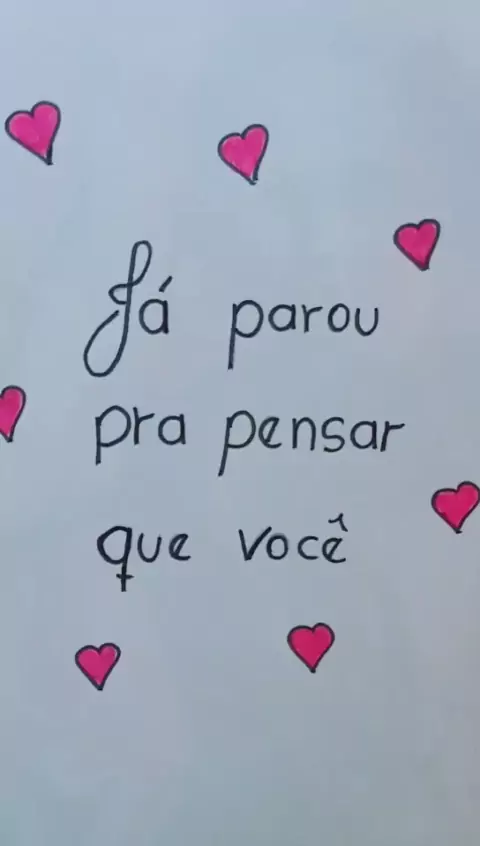 Já parou
pra pensar
que você